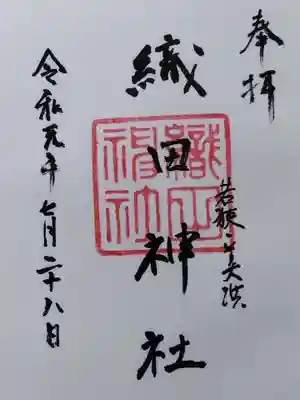 奉拝
若狭 美浜
織田神社
織田神社
令和元年七月二十八日